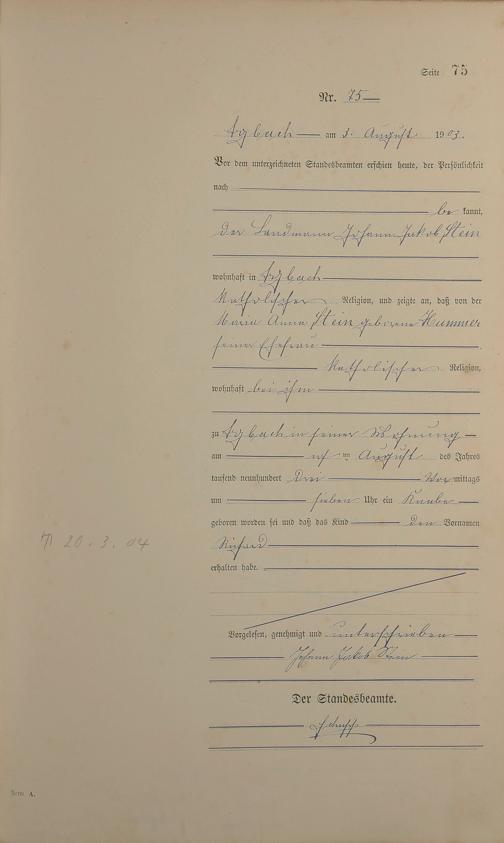 Seite 75
Nr. 75
am 3. August 1903.
Vor dem unterzeichneten Standesbeamten erschien heute, der Persönlichkeit
nach
be kannt,
der Landmann Johann Jakob Stein
wohnhaft in
katholischer Religion, und zeigte an, daß von der
Maria Anna Stein geborene Hummer
seiner Ehefrau
katholischer Religion,
wohnhaft bei ihm
zu in seiner Wohnung
am August des Jahres
tausend neunhundert drei Vor mittags
um sieben Uhr ein Knabe
geboren worden sei und daß das Kind den Vornamen
Richard
erhalten habe.
20.3.04
Vorgelesen, genehmigt und unterschrieben
Johann Jakob Stein
Der Standesbeamte.
Form. A.